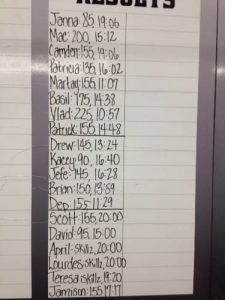 RESULTS
Janna: 85, 19:06
Mac: 200, 15:12
Camden: 155, 19:06
Patricia: 135, 16:02
Martay: 155, 11:07
Basil: 175, 14:38
Vlad: 225, 10:57
Patrick: 155 14:48
Drew: 145, 13:24
Kacey: 90, 16:40
Jefe: 145, 16:28
Brian: 150, 13:59
Dep: 155 11:29
Scott: 155, 20:00
David: 95, 15:00
April: skillz, 20:00
Lourdes: skillz, 20:00
Teresa: skillz, 19:20
Jamison: 155 17:17